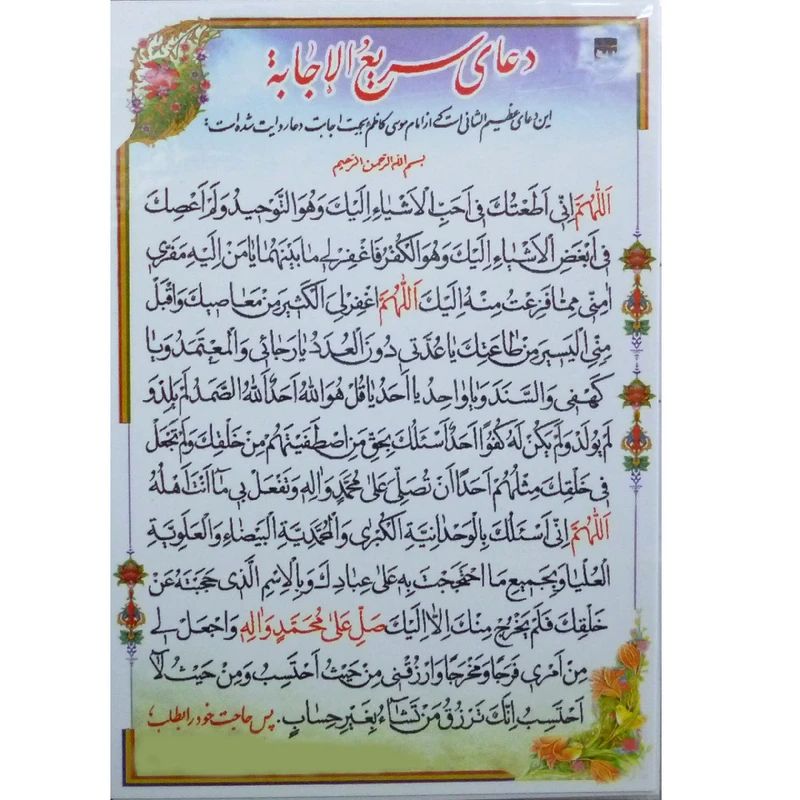 دعای سریع الإجابة
این دعای عظیم الشانی است که از امام موسی کاظم بجهت اجابت دعا روایت شده است:
بسم الله الرحمن الرحیم
اَللّٰهُمَّ اِنّی اَطَعْتُكَ فی اَحَبِّ الْاَشْیٰاءِ اِلَیْكَ وَهُوَ التَّوْحیدُ وَلَمْ اَعْصِكَ
فی اَبْغَضِ الْاَشْیٰاءِ اِلَیْكَ وَهُوَ الْكُفْرُ فَاغْفِرْ لی مٰا بَیْنَهُمٰا یٰا مَنْ اِلَیْهِ مَفَرّی
اٰمِنّی مِمّٰا فَزِعْتُ مِنْهُ اِلَیْكَ اَللّٰهُمَّ اغْفِرْ لِیَ الْكَثیرَ مِنْ مَعٰاصیكَ وَاقْبَلْ
مِنِّی الْیَسیرَ مِنْ طٰاعَتِكَ یٰا عُدَّتی دُونَ الْعُدَدِ یٰا رَجٰائی وَالْمُعْتَمَدُ وَیٰا
كَهْفی وَالسَّنَدَ وَیٰا وٰاحِدُ یٰا اَحَدُ یٰا قُلْ هُوَ اللّٰهُ اَحَدٌ اَللّٰهُ الصَّمَدُ لَمْ یَلِدْ وَ
لَمْ یُولَدْ وَلَمْ یَكُنْ لَهُ كُفُوًا اَحَدٌ اَسْئَلُكَ بِحَقِّ مَنِ اصْطَفَیْتَهُمْ مِنْ خَلْقِكَ وَلَمْ تَجْعَلْ
فی خَلْقِكَ مِثْلَهُمْ اَحَدًا اَنْ تُصَلِّیَ عَلٰی مُحَمَّدٍ وَاٰلِهِ وَتَفْعَلَ بی مٰا اَنْتَ اَهْلُهُ
اَللّٰهُمَّ اِنّی اَسْئَلُكَ بِالْوَحْدٰانِیَّةِ الْكُبْرٰی وَالْمُحَمَّدِیَّةِ الْبَیْضٰاءِ وَالْعَلَوِیَّةِ
الْعُلْیٰا وَبِجَمیعِ مَا احْتَجَجْتَ بِهِ عَلٰی عِبٰادِكَ وَبِالْاِسْمِ الَّذی حَجَبْتَهُ عَنْ
خَلْقِكَ فَلَمْ یَخْرُجْ مِنْكَ اِلّٰا اِلَیْكَ صَلِّ عَلٰی مُحَمَّدٍ وَاٰلِهِ وَاجْعَلْ لی
مِنْ اَمْری فَرَجًا وَمَخْرَجًا وَارْزُقْنی مِنْ حَیْثُ اَحْتَسِبُ وَمِنْ حَیْثُ لٰا
اَحْتَسِبُ اِنَّكَ تَرْزُقُ مَنْ تَشٰاءُ بِغَیْرِ حِسٰابٍ. پس حاجت خود را بطلب؛